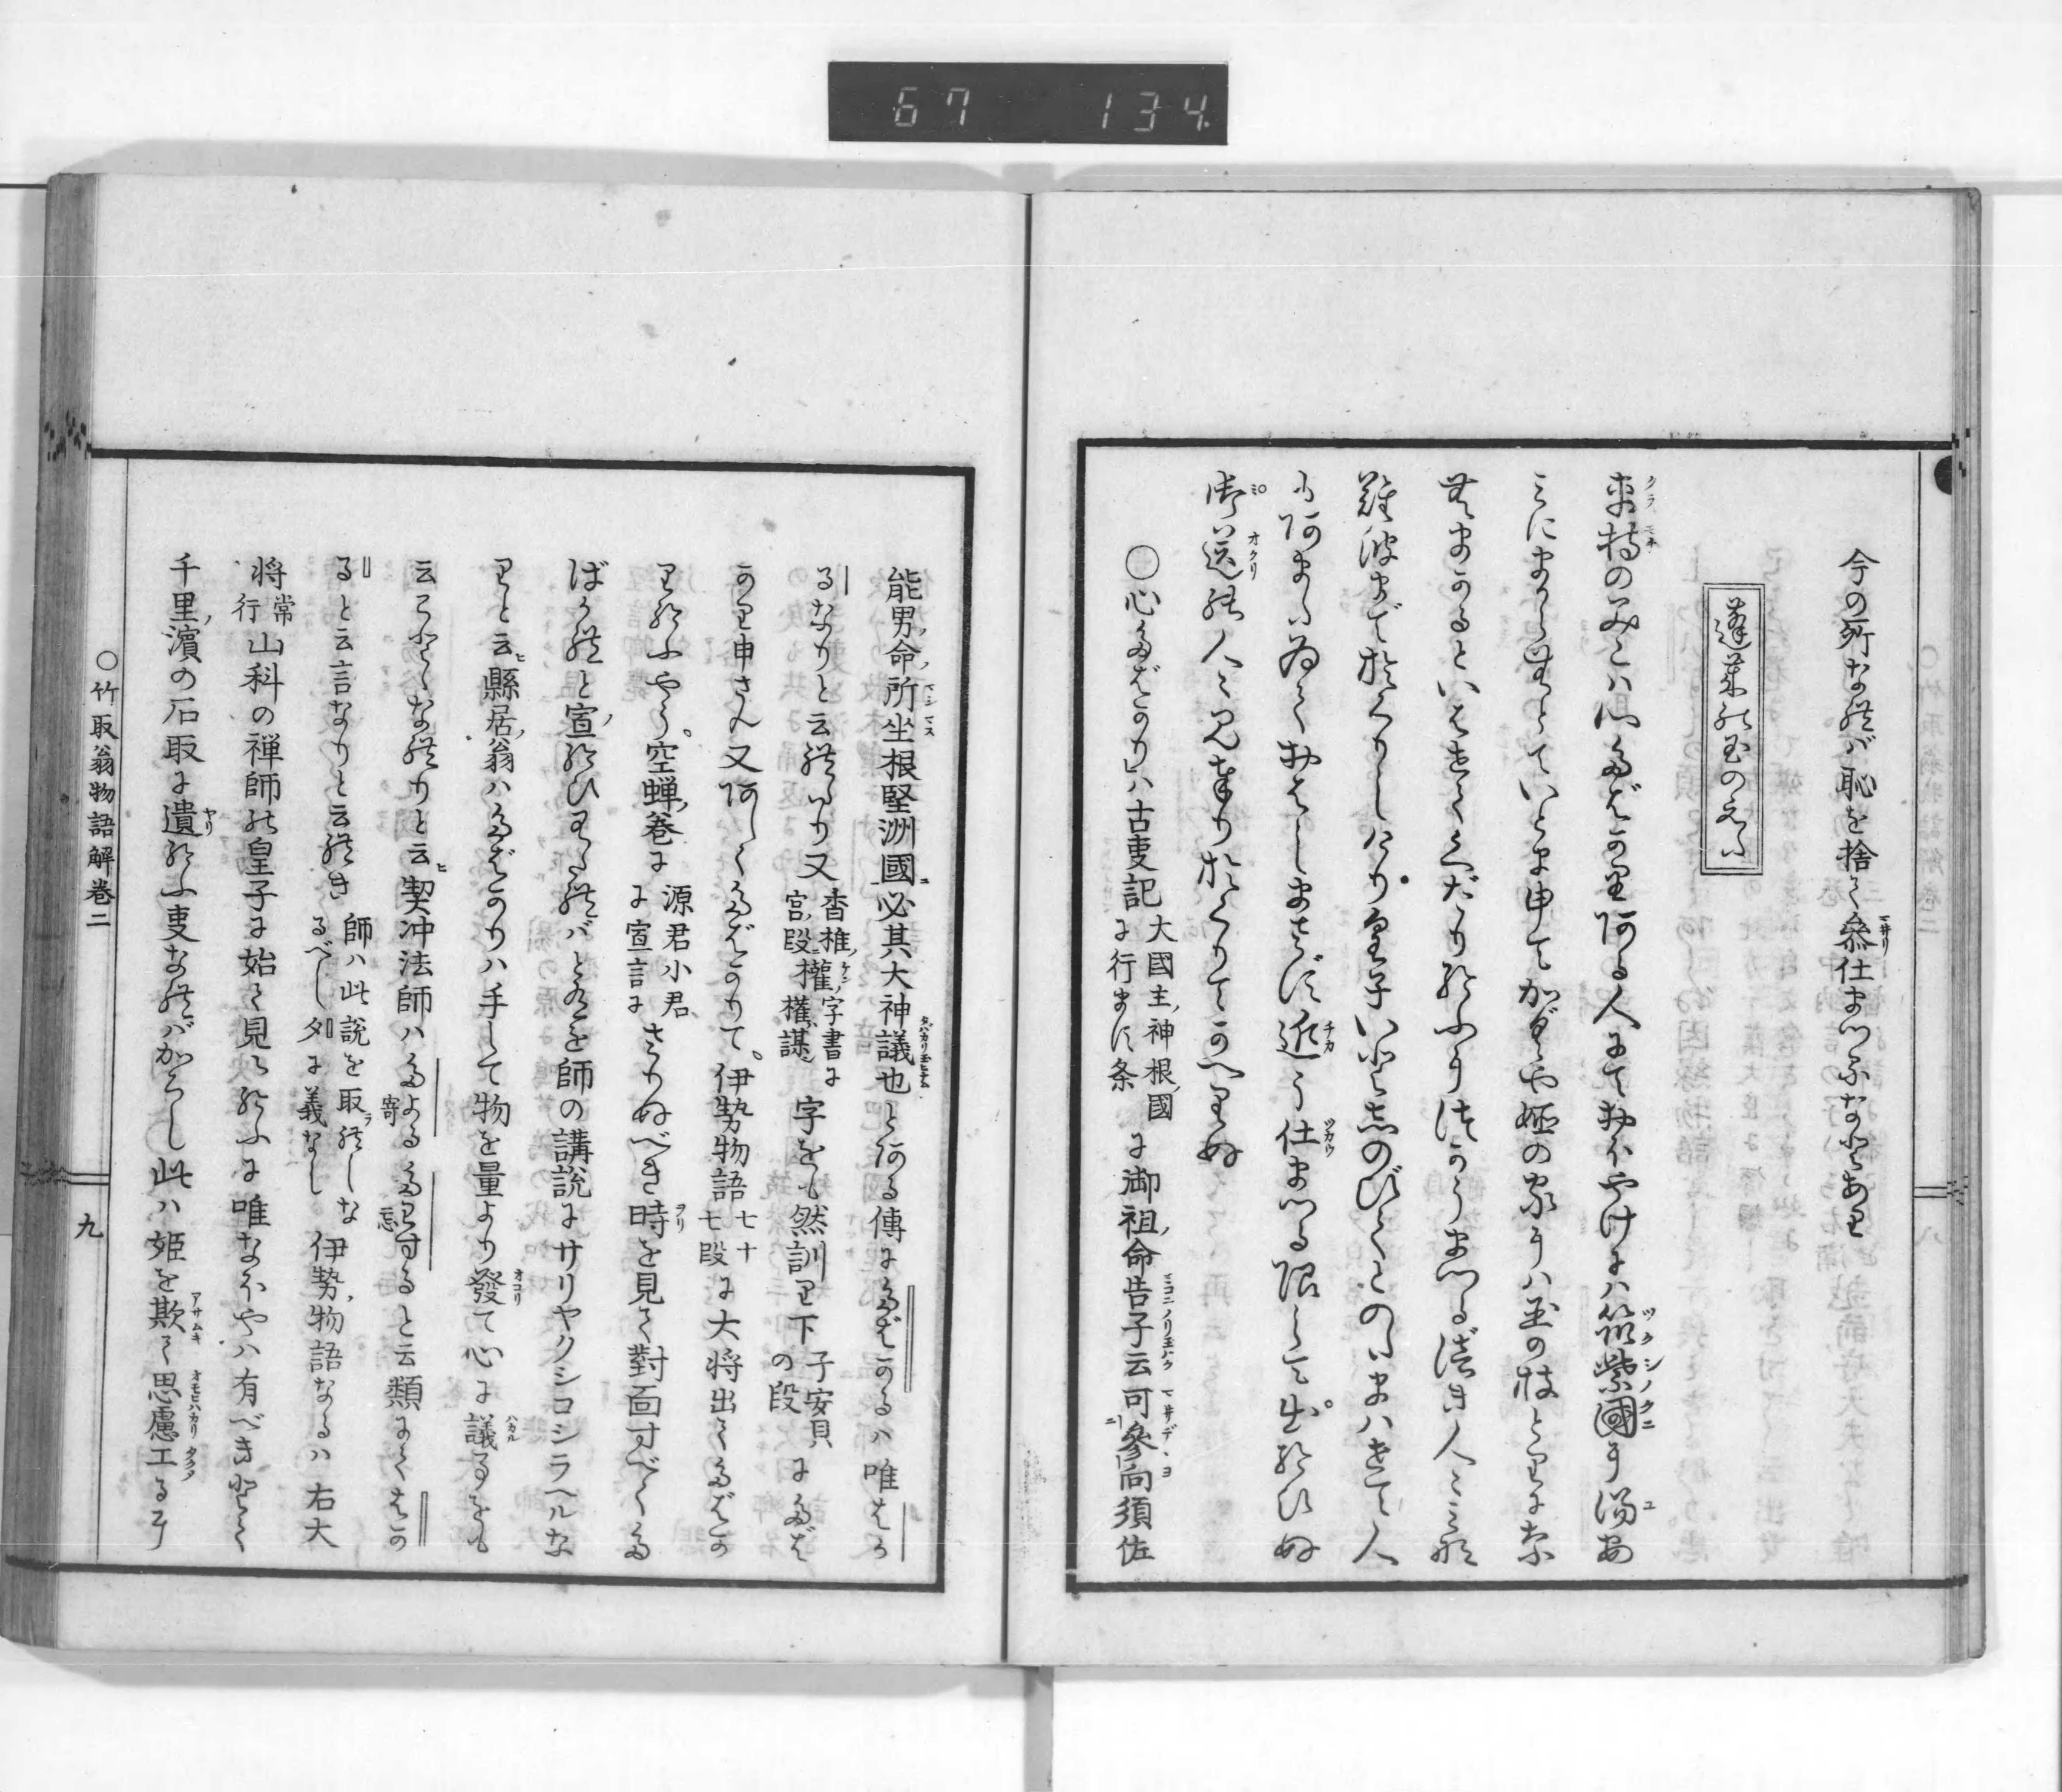 67 134
今の所なればは恥を捨て参仕まつふなどあり
蓬萊の玉のえだ
車持のみこハ心たばかり阿る人にておほやけにハ筑紫國に湯あ
みにまからむとていとま申てかぐや姫の家にハ玉の枝とりになん
まかるといはせてくだり給ふに仕うまつるべき人々みな
難波まで於くりしけり皇子いと志のびてとのたまハせて人
も阿また為ておはしまさず近う仕まつる限して出給ひぬ
御送の人々見奉り於くりてかへりぬ
○心たばかりハ古事記 大國主神根國に行ます条 に御祖命告子云可參向須佐
能男命所坐根堅洲國必其大神議也と阿る傳にたばかるハ唯はか
るなりと云れたり又 香椎宮段 權字書に權謀 字をも然訓り下 子安貝の段 にたば
かり申さん又阿しくたばかりて伊勢物語 七十七段 に大将出てたばか
り給ふやう空蝉巻に 源君小君に宣言に さりぬべき時を見て對面すべくた
ばかれと宣給ひわたればと有を師の講説にサリヤクシコシラヘルな
りと云縣居翁ハたばかりハ手して物を量より發て心に議る事をも
云こととなれりと云契沖法師ハたよる 寄 たわする 忘 と云類にてはか
ると云言なりと云れき 師ハ此説を取られしなるべしタに義なし 伊勢物語なるハ右大
将 常行 山科の禅師の皇子に始て見え給ふに唯なほやハ有べきとて
千里濱の石取に遺給ふ事なればかろし此ハ姫を欺て思慮工る事
○竹取翁物語解巻二
九